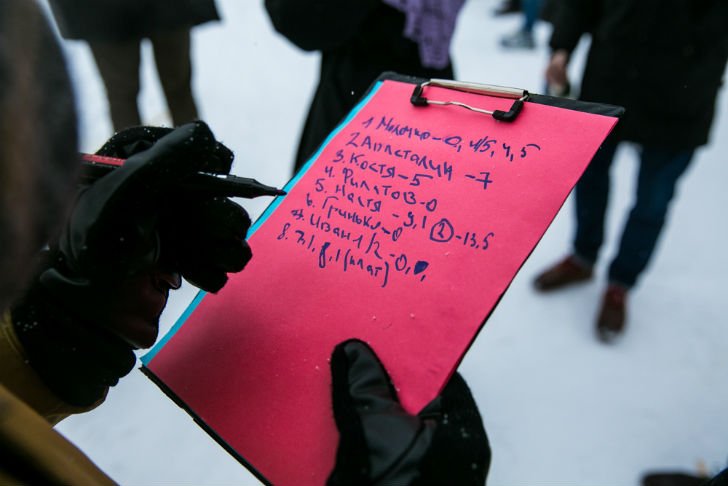 1 Молочко-0, 4/5, 4, 5
2 Аписталий -7
3. Костя-5
4. Филатов-0
5. Настя-9,1 ②-13,5
6. Гринько-0
7. Иван 1/2-0,
8. 3,1, 8,1 (плат)